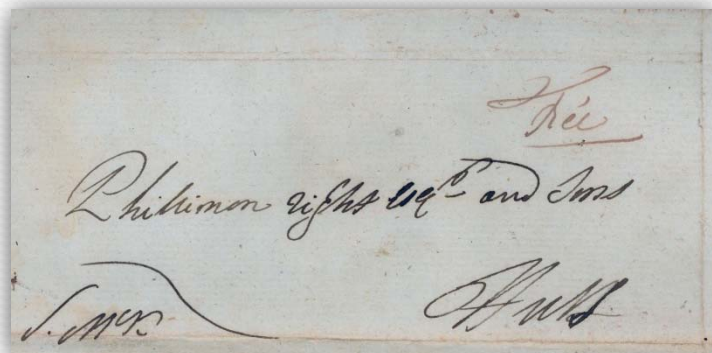 Free
Phillimon right Esqr and Sons
Hull